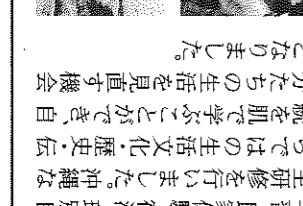 研修を行いました。沖縄な
らではの生活文化・歴史・伝
統を肌で学ぶことができ、自
分たちの生活を見直す機会
となりました。